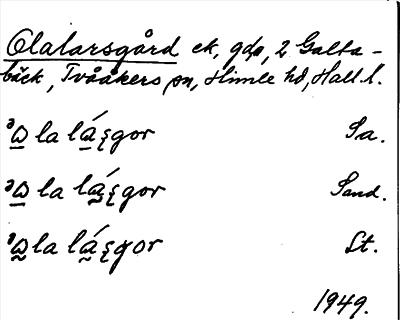 Olalarsgård ek, gdn, 2 Galta-
bäck, Tvååkers sn, Himle hd, Hall. l.
ω la lá ꞩgor Sa.
ω la lá ꞩgor Sand.
ω la lá ꞩgor St.
1949.